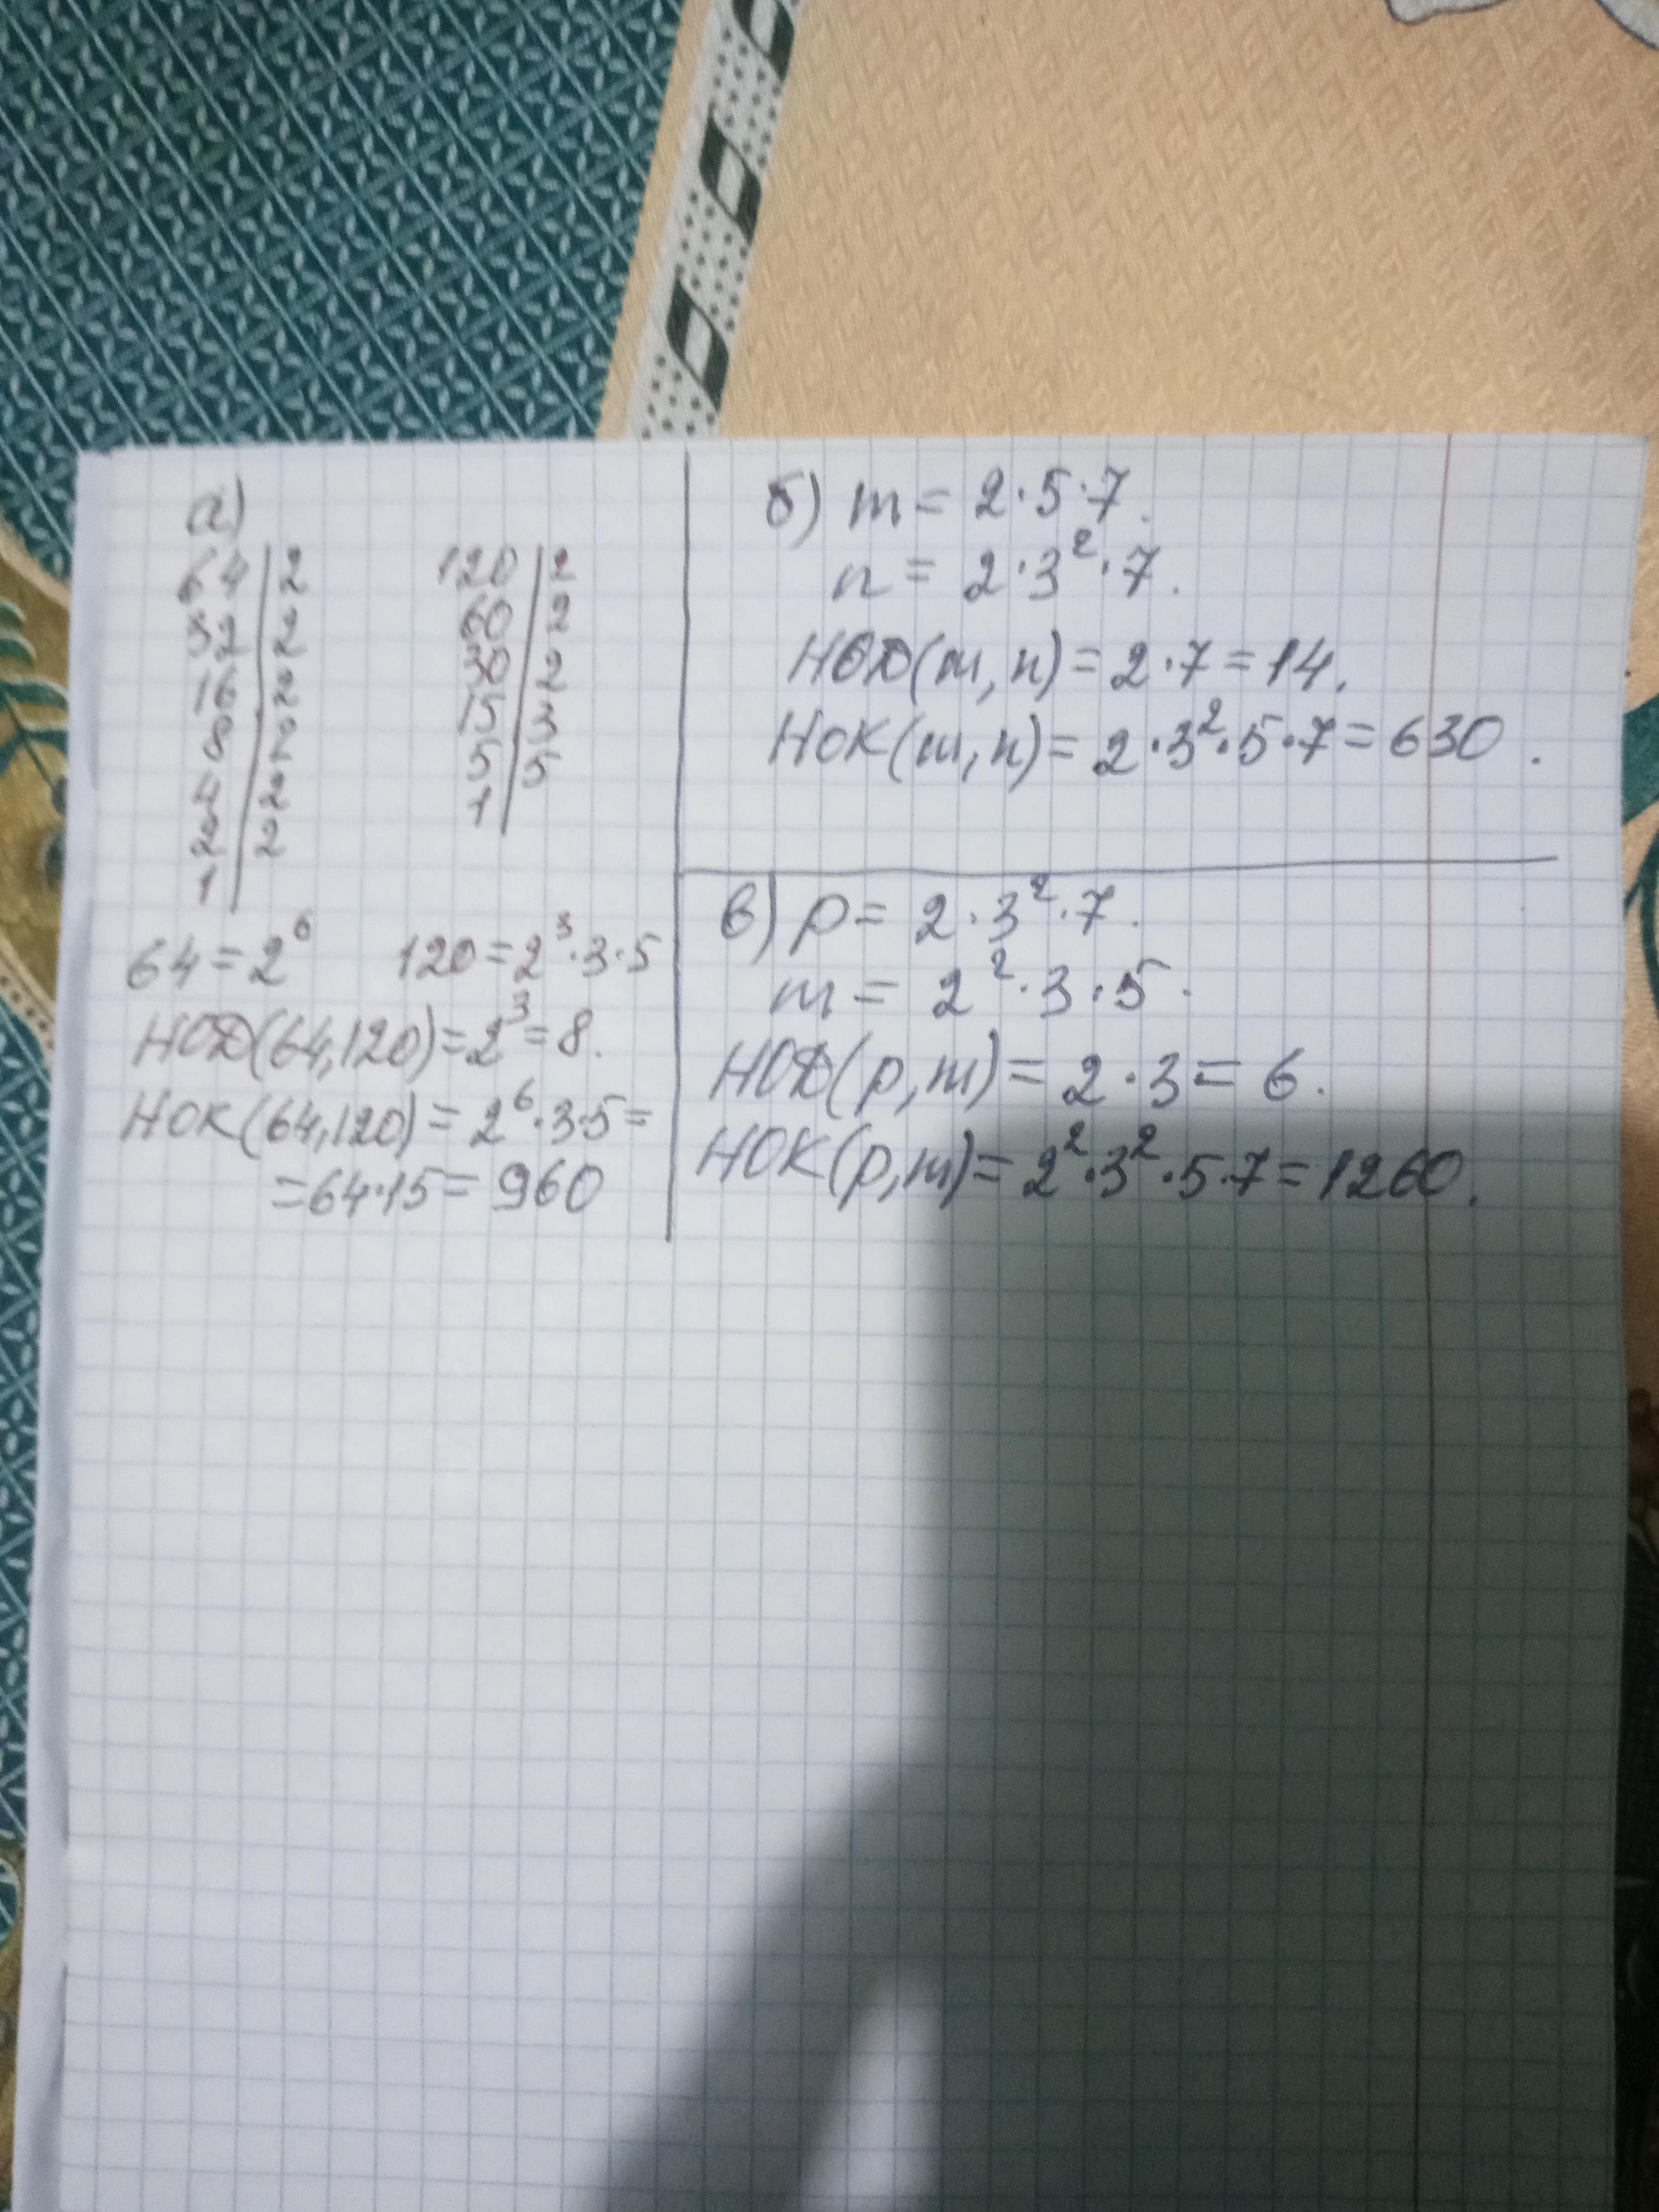 а)
64 | 2
32 | 2
16 | 2
8 | 2
4 | 2
2 | 2
1
120 | 2
60 | 2
30 | 2
15 | 3
5 | 5
1
64 = 2⁶ 120 = 2³·3·5
НОД(64,120) = 2³ = 8.
НОК(64,120) = 2⁶·3·5 =
= 64·15 = 960
б) m = 2·5·7.
n = 2·3²·7.
НОД(m, n) = 2·7 = 14.
НОК(m, n) = 2·3²·5·7 = 630.
в) p = 2·3²·7.
m = 2²·3·5.
НОД(p, m) = 2·3 = 6.
НОК(p, m) = 2²·3²·5·7 = 1260.